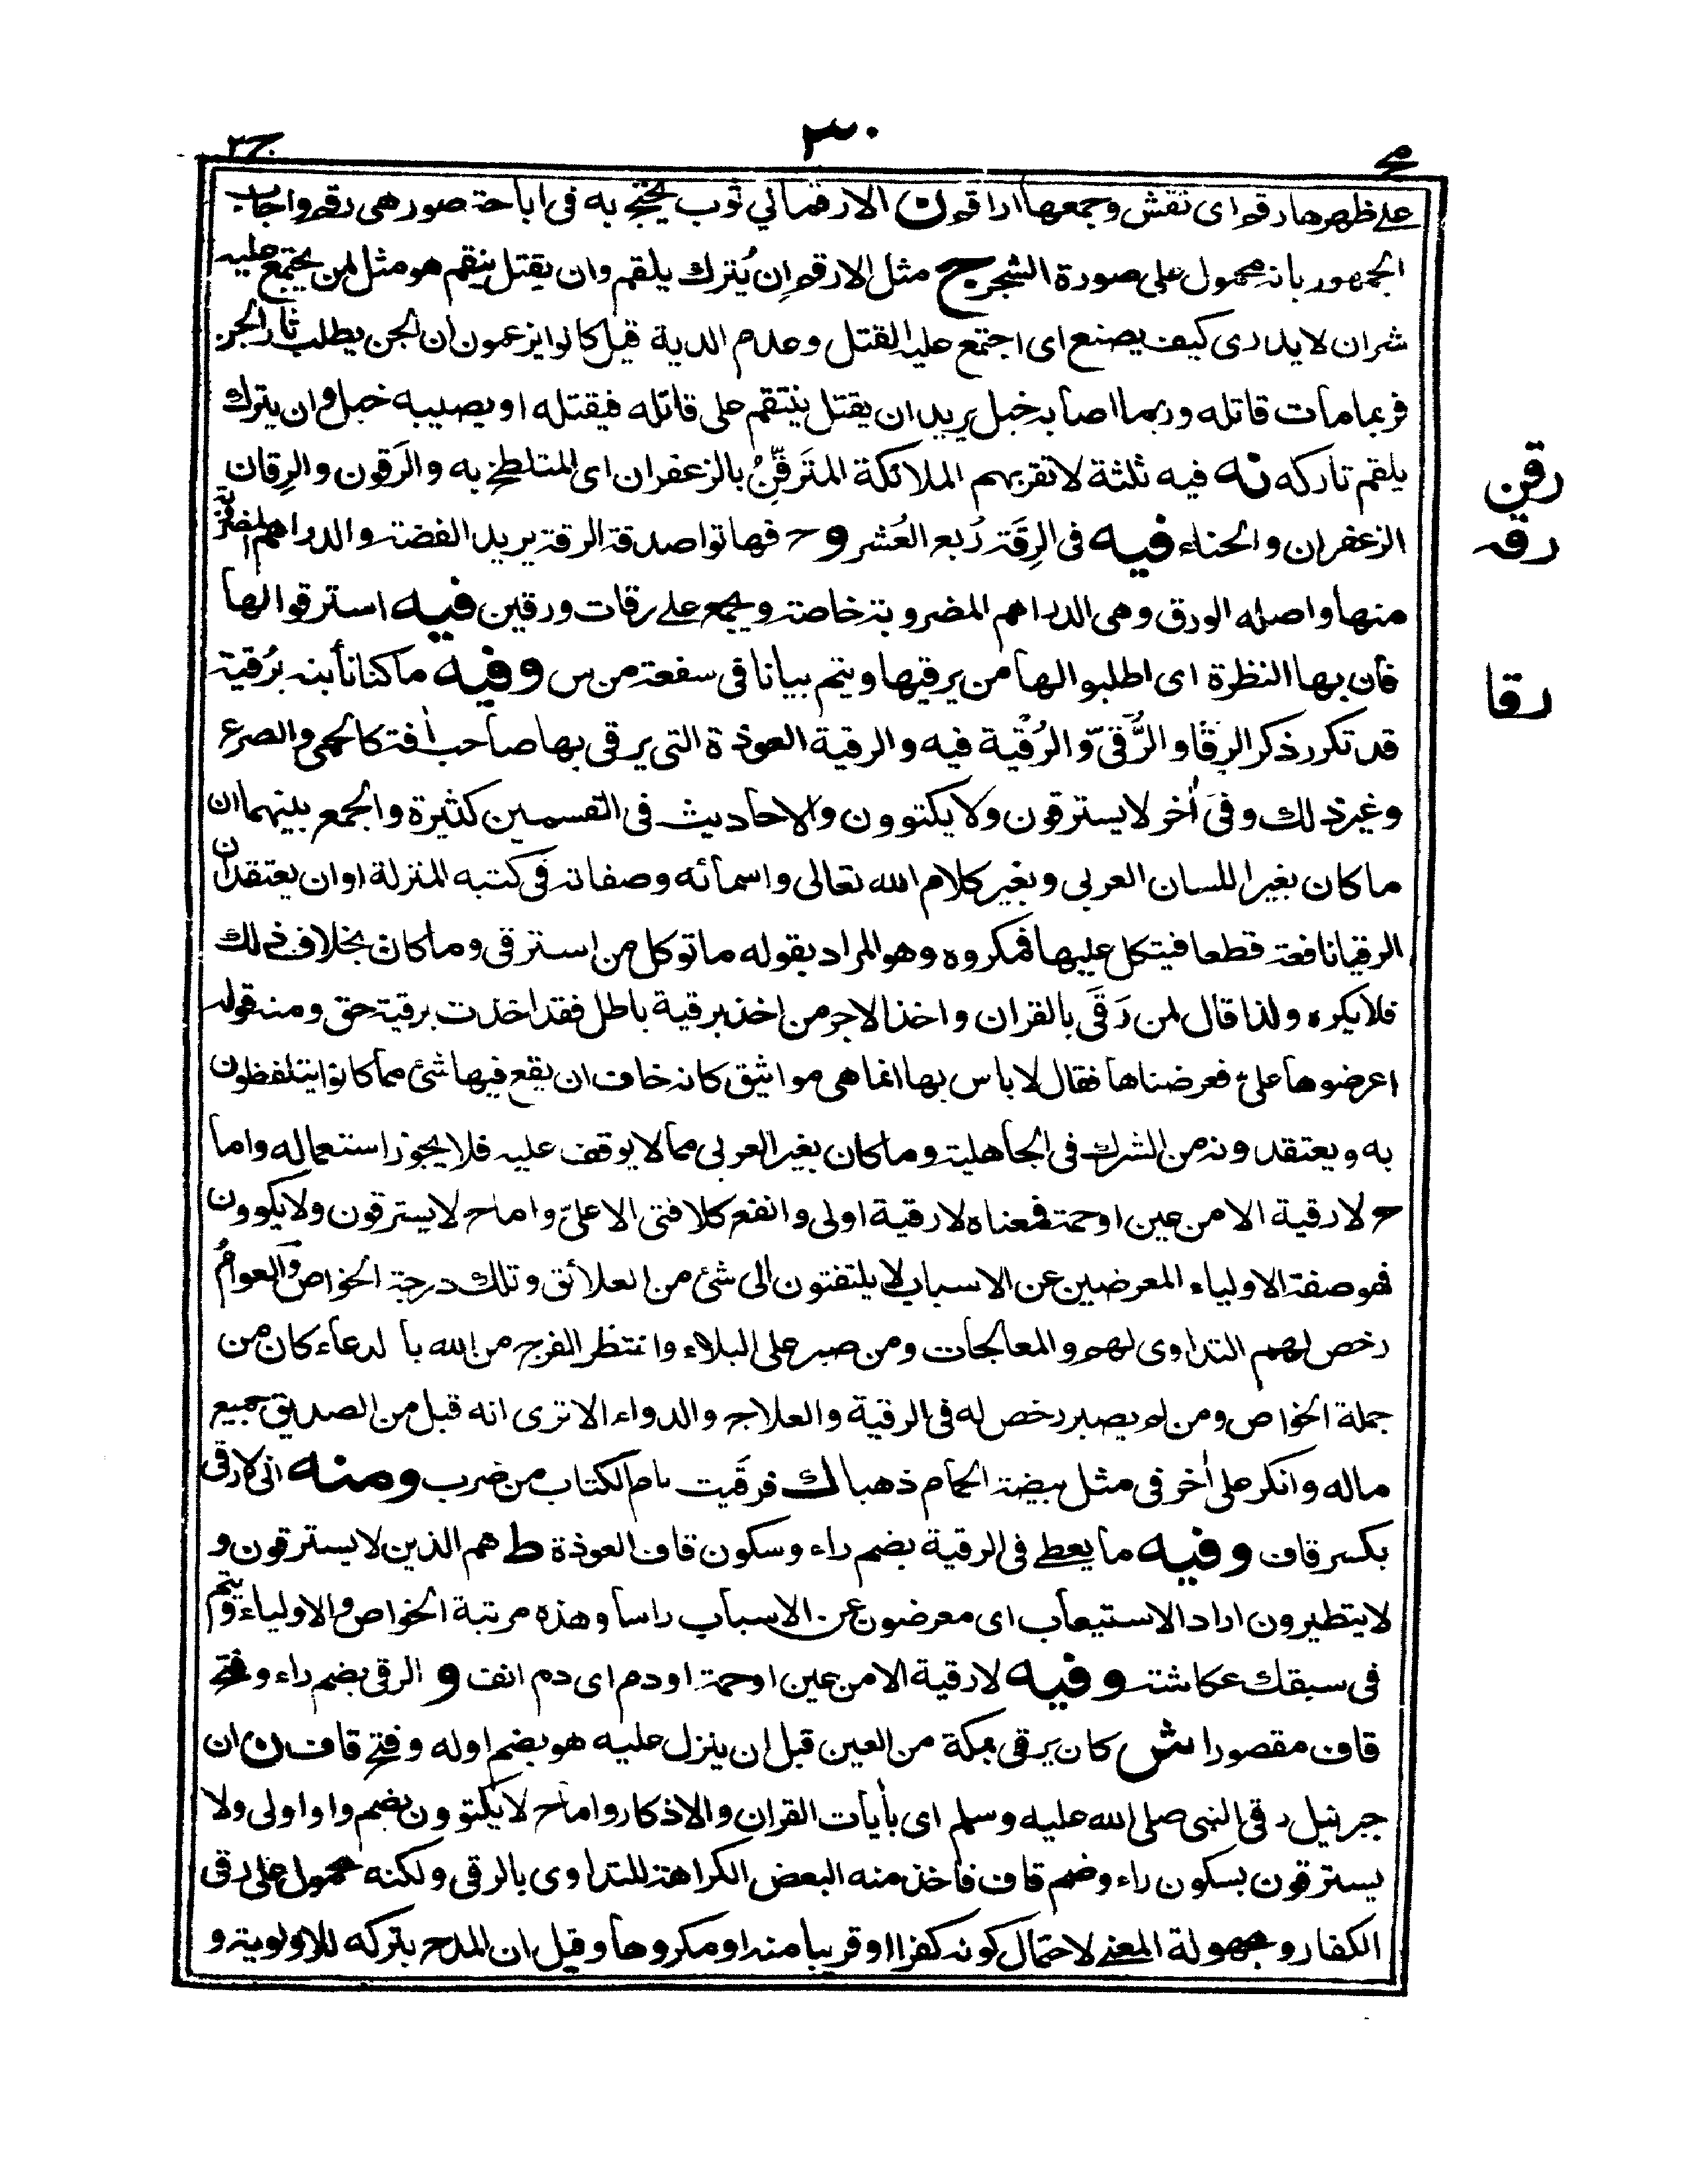 ج٣
٣٧٠
على ظهرها رقم اى نقش وجمعها اراقم ن الا رقما في ثوب يحتج به فى اباحة صور هى رقم واجاب
الجمهور بانه محمول على صورة الشجر ج مثل الارقم اِن يُترك يلقم وان يقتل ينقم هو مثل لمن يجتمع عليه
شران لا يدرى كيف يصنع اى اجتمع عليه القتل وعدم الدية قيل كانوا يزعمون ان الجن يطلب ثار الجن
فربما مات قاتله وربما اصابه خبل يريد ان يقتل ينتقم على قاتله فيقتله او يصيبه خبل وان يترك
يلقم تاركه نه فيه ثلثة لا تقربهم الملائكة المتَرقِّنُ بالزعفران اى المتلطخ به والرَقون والرِقان
رقن
الزعفران والحناء فيه فى الرِقَة رُبع العُشر و ح فهاتوا صدقة الرقة يريد الفضة والدراهم المضروبة
رقه
منها واصله الورق وهى الدراهم المضروبة خاصة ويجمع على رقات ورقين فيه استرقوا لها
فان بها النظرة اى اطلبوا لها من يرقيها ويتم بيانا فى سفعة من س وفيه ما كنا نأبنه برُقية
رقا
قد تكرر ذكر الرقا والرُّقىّ والرُقْية فيه والرقية العوذة التى يرقى بها صاحب اٰفة كالحمى والصرع
وغير ذلك وفى اٰخر لا يسترقون ولا يكتوون والاحاديث فى القسمين كثيرة والجمع بينهما ان
ما كان بغير اللسان العربى وبغير كلام الله تعالى واسمائه وصفاته فى كتبه المنزلة او ان يعتقد ان
الرقيا نافعة قطعا فيتكل عليها فمكروه وهو المراد بقوله ما توكل من استرقى وما كان بخلاف ذلك
فلا يكره ولذا قال لمن رَقَى بالقران واخذ الاجر من اخذ برقية باطل فقد اخذت برقية حق ومنه قوله
اعرضوها علىّ فعرضناها فقال لا باس بها انما هى مواثيق كانه خاف ان يقع فيها شئ مما كانوا يتلفظون
به ويعتقدونه من الشرك فى الجاهلية وما كان بغير العربى مما لا يوقف عليه فلا يجوز استعماله واما
ح لا رقية الا من عين او حمة فمعناه لا رقية اولى وانفع كلا فتى الا علىّ واما ح لا يسترقون ولا يكتوون
فهو صفة الاولياء المعرضين عن الاسباب لا يلتفتون الى شئ من العلائق وتلك درجة الخواص والعوام
رخص لهم التداوى لهم والمعالجات ومن صبر على البلاء وانتظر الفرج من الله با لدعاء كان من
جملة الخواص ومن لم يصبر رخص له فى الرقية والعلاج والدواء الا ترى انه قبل من الصديق جميع
ماله وانكر على اٰخر فى مثل بيضة الحمام ذهبا ك فرقَيت بام الكتاب من ضرب ومنه انى لارقى
بكسر قاف وفيه ما يعطى فى الرقية بضم راء وسكون قاف العوذة ط هم الذين لا يسترقون و
لا يتطيرون اراد الاستيعاب اى معرضون عن الاسباب راسا وهذه مرتبة الخواص والاولياء ويتم
فى سبقك عكاشة وفيه لا رقية الا من عين او حمة او دم اى دم انف و الرقى بضم راء وفتح
قاف مقصورا ش كان يرقى بمكة من العين قبل ان ينزل عليه هو بضم اوله وفتح قاف ن ان
جبرئيل رقى النبى صلى الله عليه وسلم اى باٰيات القران والاذكار واما ح لا يكتوون بضم واو اولى ولا
يسترقون بسكون راء وضم قاف فاخذ منه البعض الكراهة للتداوى بالرقى ولكنه محمول على رقى
الكفار ومجهولة المعنى لاحتمال كونه كفرا او قريبا منه او مكروها وقيل ان المدح بتركه للاولوية و